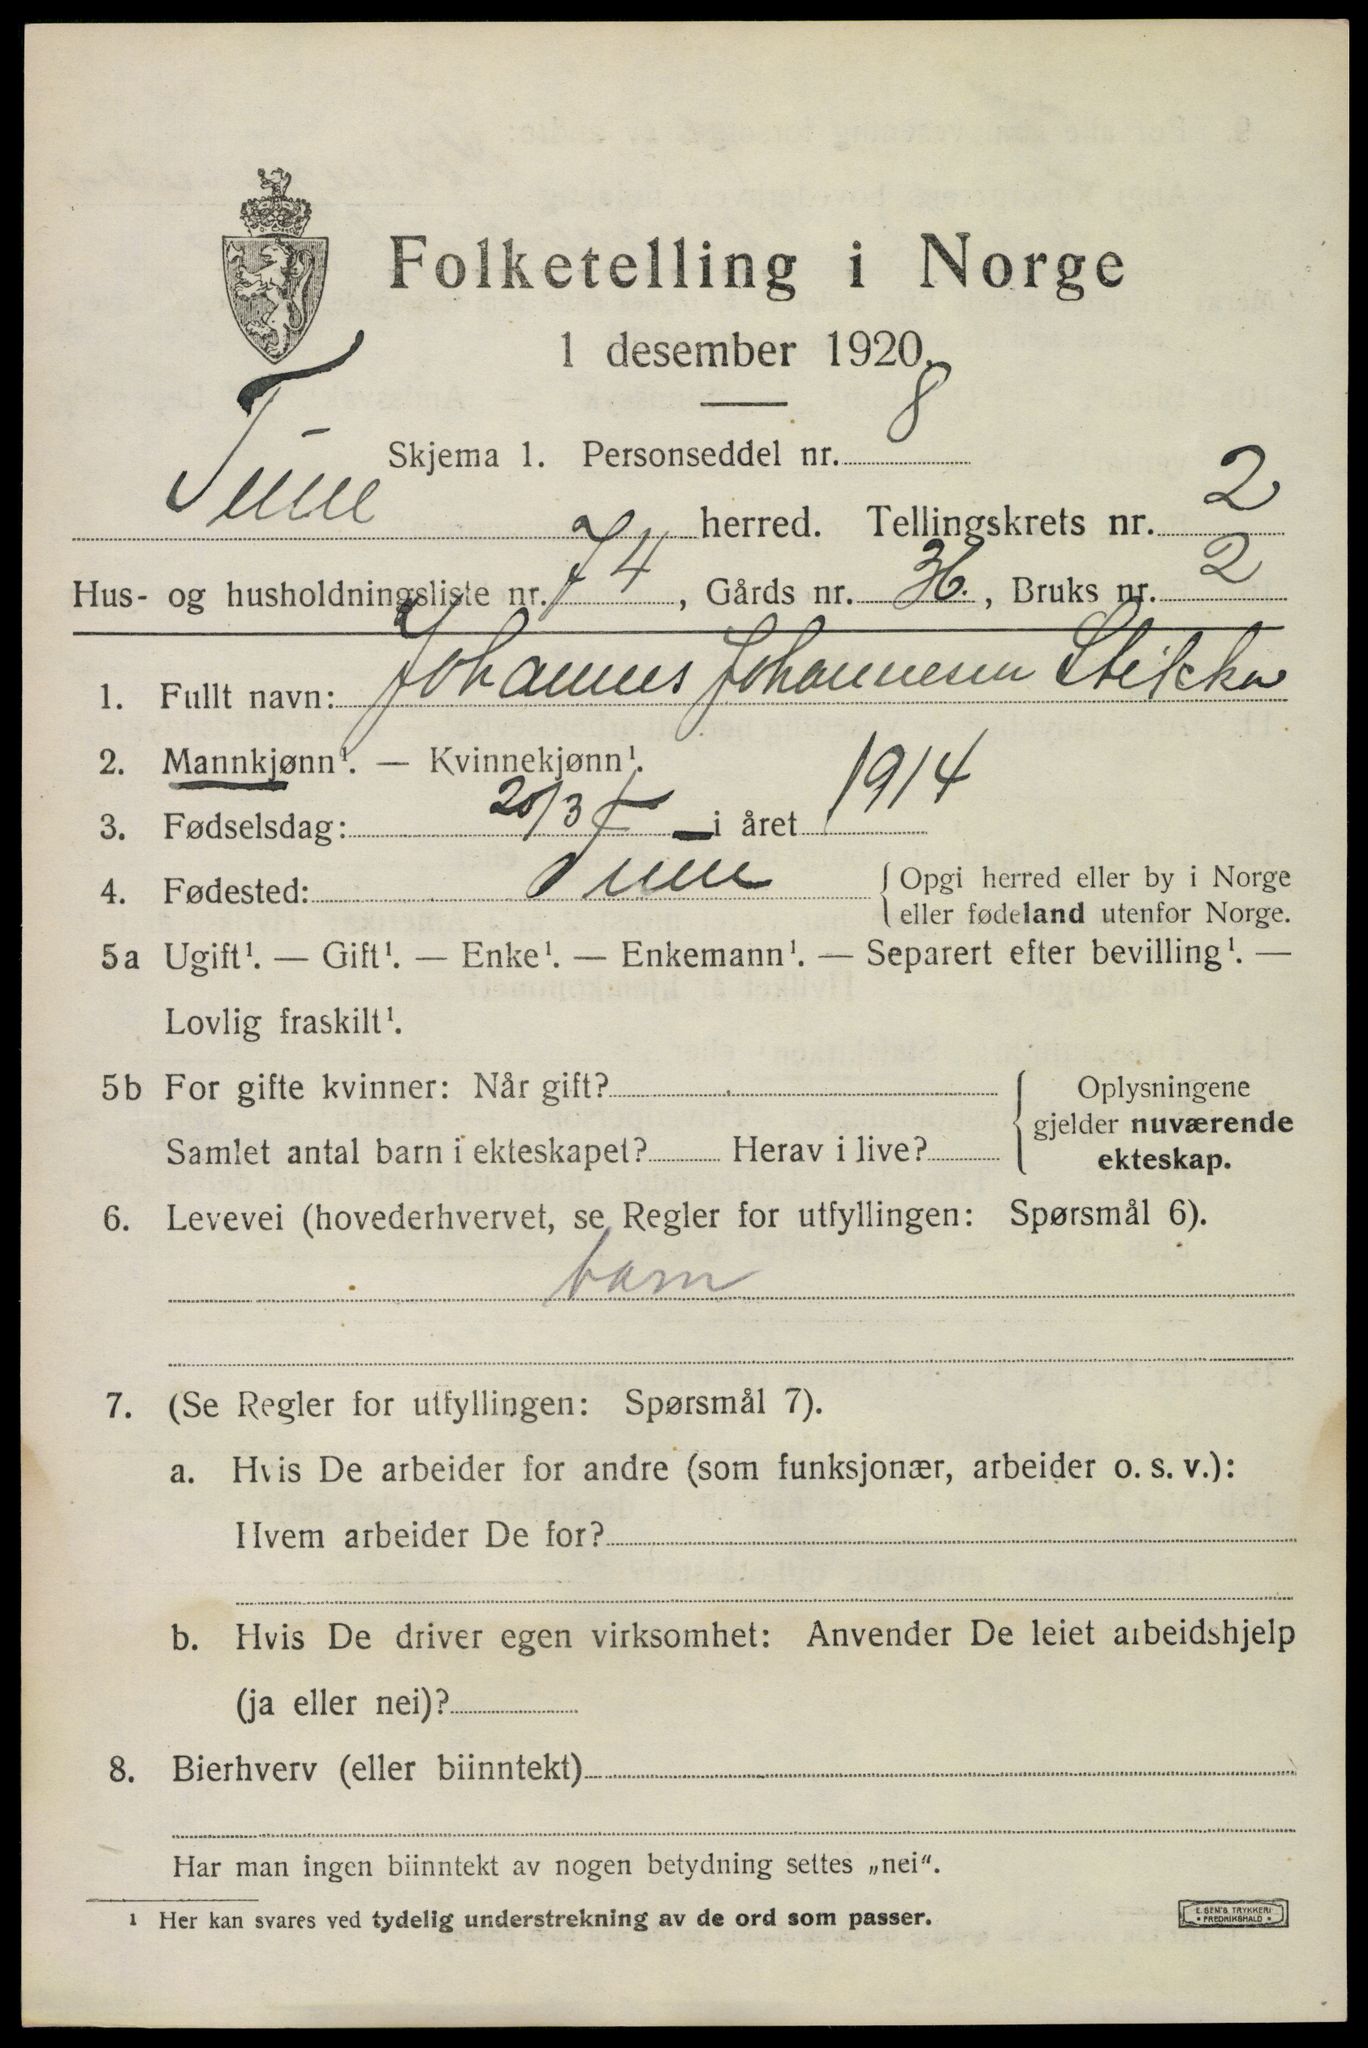 Folketelling i Norge
1 desember 1920.
Skjema 1. Personseddel nr. 8
Tune herred. Tellingskrets nr. 2
Hus- og husholdningsliste nr. 74, Gårds nr. 36., Bruks nr. 2
1. Fullt navn: Johannes Johannesen Stikka
2. Mannkjønn¹. — Kvinnekjønn¹.
3. Fødselsdag: 20/3 i året 1914
4. Fødested: Tune { Opgi herred eller by i Norge
eller fødeland utenfor Norge.
5a Ugift¹. — Gift¹. — Enke¹. — Enkemann¹. — Separert efter bevilling¹. —
Lovlig fraskilt¹.
5b For gifte kvinner: Når gift? { Oplysningene
gjelder nuværende
Samlet antal barn i ekteskapet? Herav i live? ekteskap.
6. Levevei (hovederhvervet, se Regler for utfyllingen: Spørsmål 6).
barn
7. (Se Regler for utfyllingen: Spørsmål 7).
a. Hvis De arbeider for andre (som funksjonær, arbeider o. s. v.):
Hvem arbeider De for?
b. Hvis De driver egen virksomhet: Anvender De leiet arbeidshjelp
(ja eller nei)?
8. Bierhverv (eller biinntekt)
Har man ingen biinntekt av nogen betydning settes „nei".
¹ Her kan svares ved tydelig understrekning av de ord som passer.
E. SEM'S TRYKKERI
• FREDRIKSHALD •